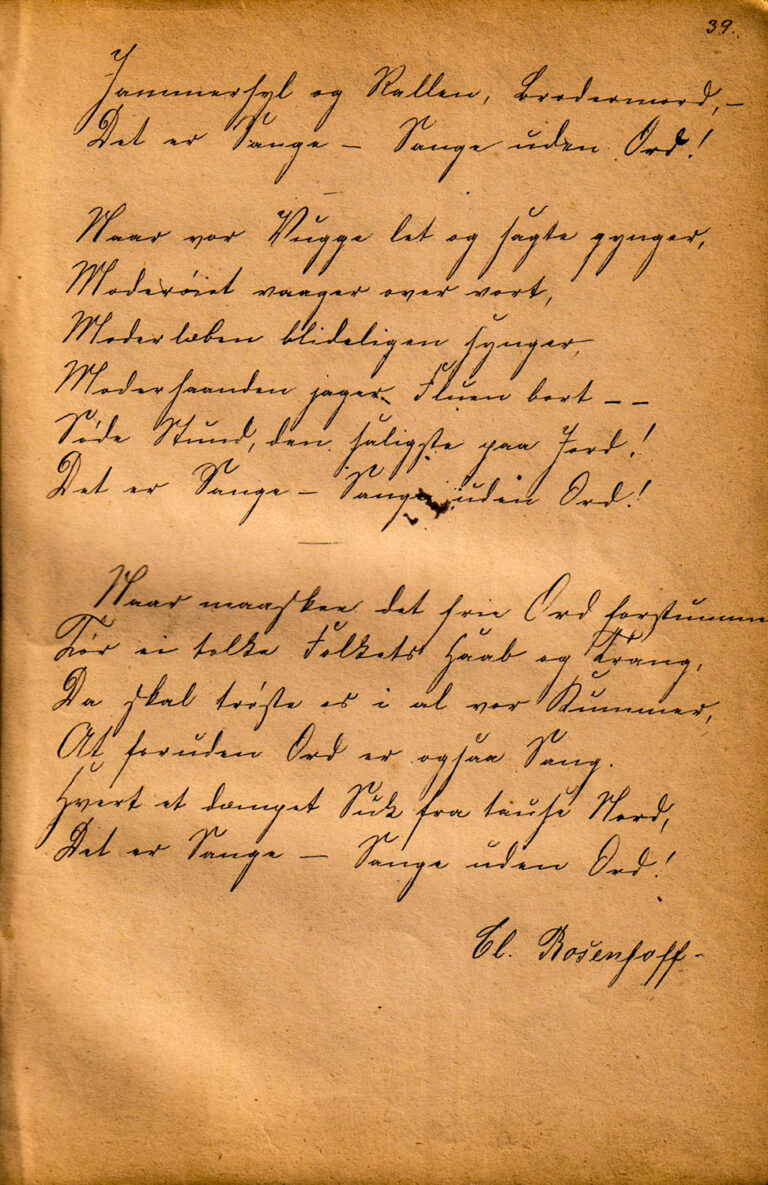 39.
Jammerhyl og Rallen, Brodermord, –
Det er Sange – Sange uden Ord!
Naar vor Vugge let og sagte gynger,
Moderøiet vaager over vort,
Moderlæben blideligen synger,
Moderhaanden jager Fluen bort – –
Søde Stund, den saligste paa Jord!
Det er Sange – Sange uden Ord!
Naar maaskee det frie Ord forstumme
Tør ei tolke Folkets Haab og Trang,
Da skal trøste os i al vor Kummer,
At foruden Ord er ogsaa Sang.
Hvert et dæmpet Suk fra tause Nord,
Det er Sange – Sange uden Ord!
Cl. Rosenhoff –